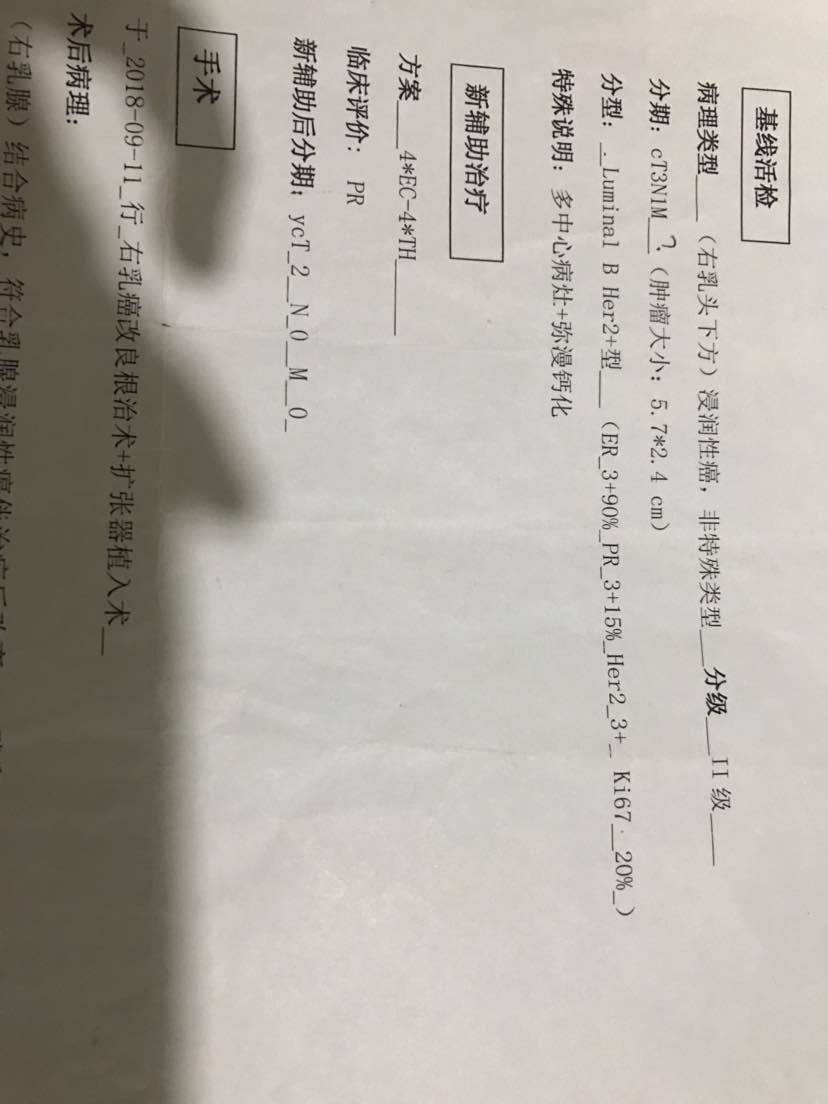 基线活检
病理类型___（右乳头下方）浸润性癌，非特殊类型___分级___II 级____
分期：cT3N1M__?（肿瘤大小：5.7*2.4 cm）
分型：__Luminal B Her2+型___（ER_3+90%_PR_3+15%_Her2_3+__ Ki67___20%_）
特殊说明：多中心病灶+弥漫钙化
新辅助治疗
方案___4*EC-4*TH______
临床评价：PR
新辅助后分期：ycT_2__N_0__M__0_
手术
于_2018-09-11_行_右乳癌改良根治术+扩张器植入术__
术后病理：
（右乳腺）结合病史，符合乳腺浸润性癌伴治疗后改变